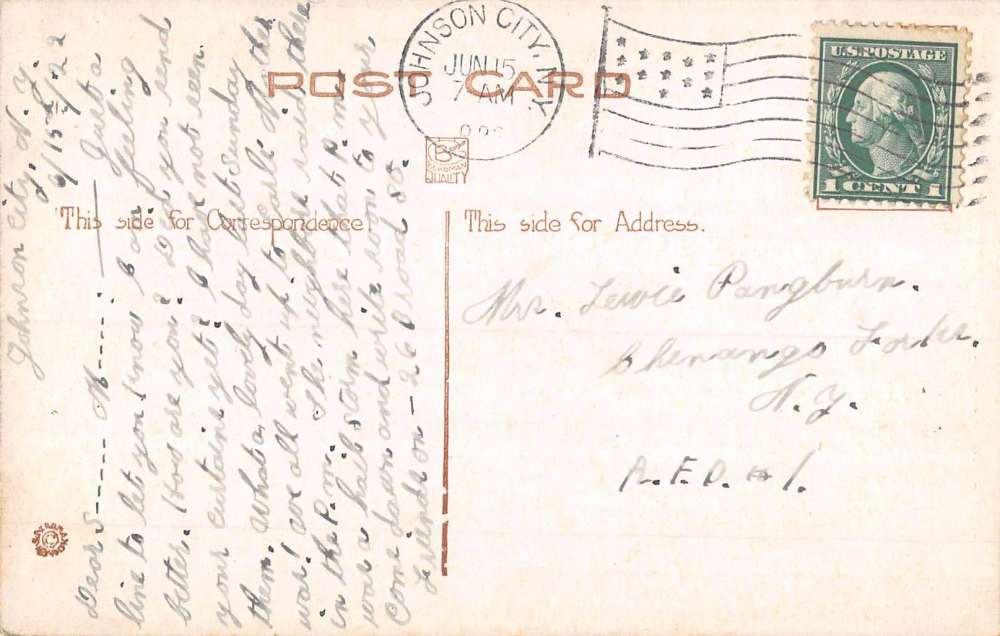 POST CARD
JOHNSON CITY, N.Y.
JUN 15
7 AM
U.S. POSTAGE
1 CENT 1
QUALITY
This side for Correspondence.
This side for Address.
Johnson City, N.Y.
6/15/22
Dear S------ M------ Just a
line to let you know I am feeling
better. How are you? Did you send
your curtains yet? I have not seen
them. What a lovely day last Sunday
was! We all went up to
in the P.m. The neighbor said there
was a hail storm here that P.m.
Come down and write soon to your
Friends on - 26 Broad St.
Mr. Lewie Pangburn.
Chenango Forks.
N.Y.
R.F.D. #1.